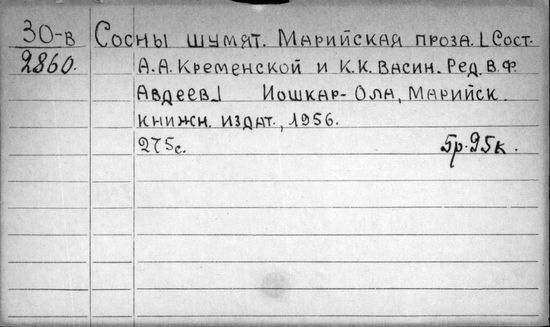 30-в Сосны шумят. Марийская проза. [Сост.
2860. А.А. Кременской и К.К. Васин. Ред. В.Ф.
Авдеев] Йошкар-Ола, Марийск.
книжн. издат., 1956.
275с. 5р.95к.